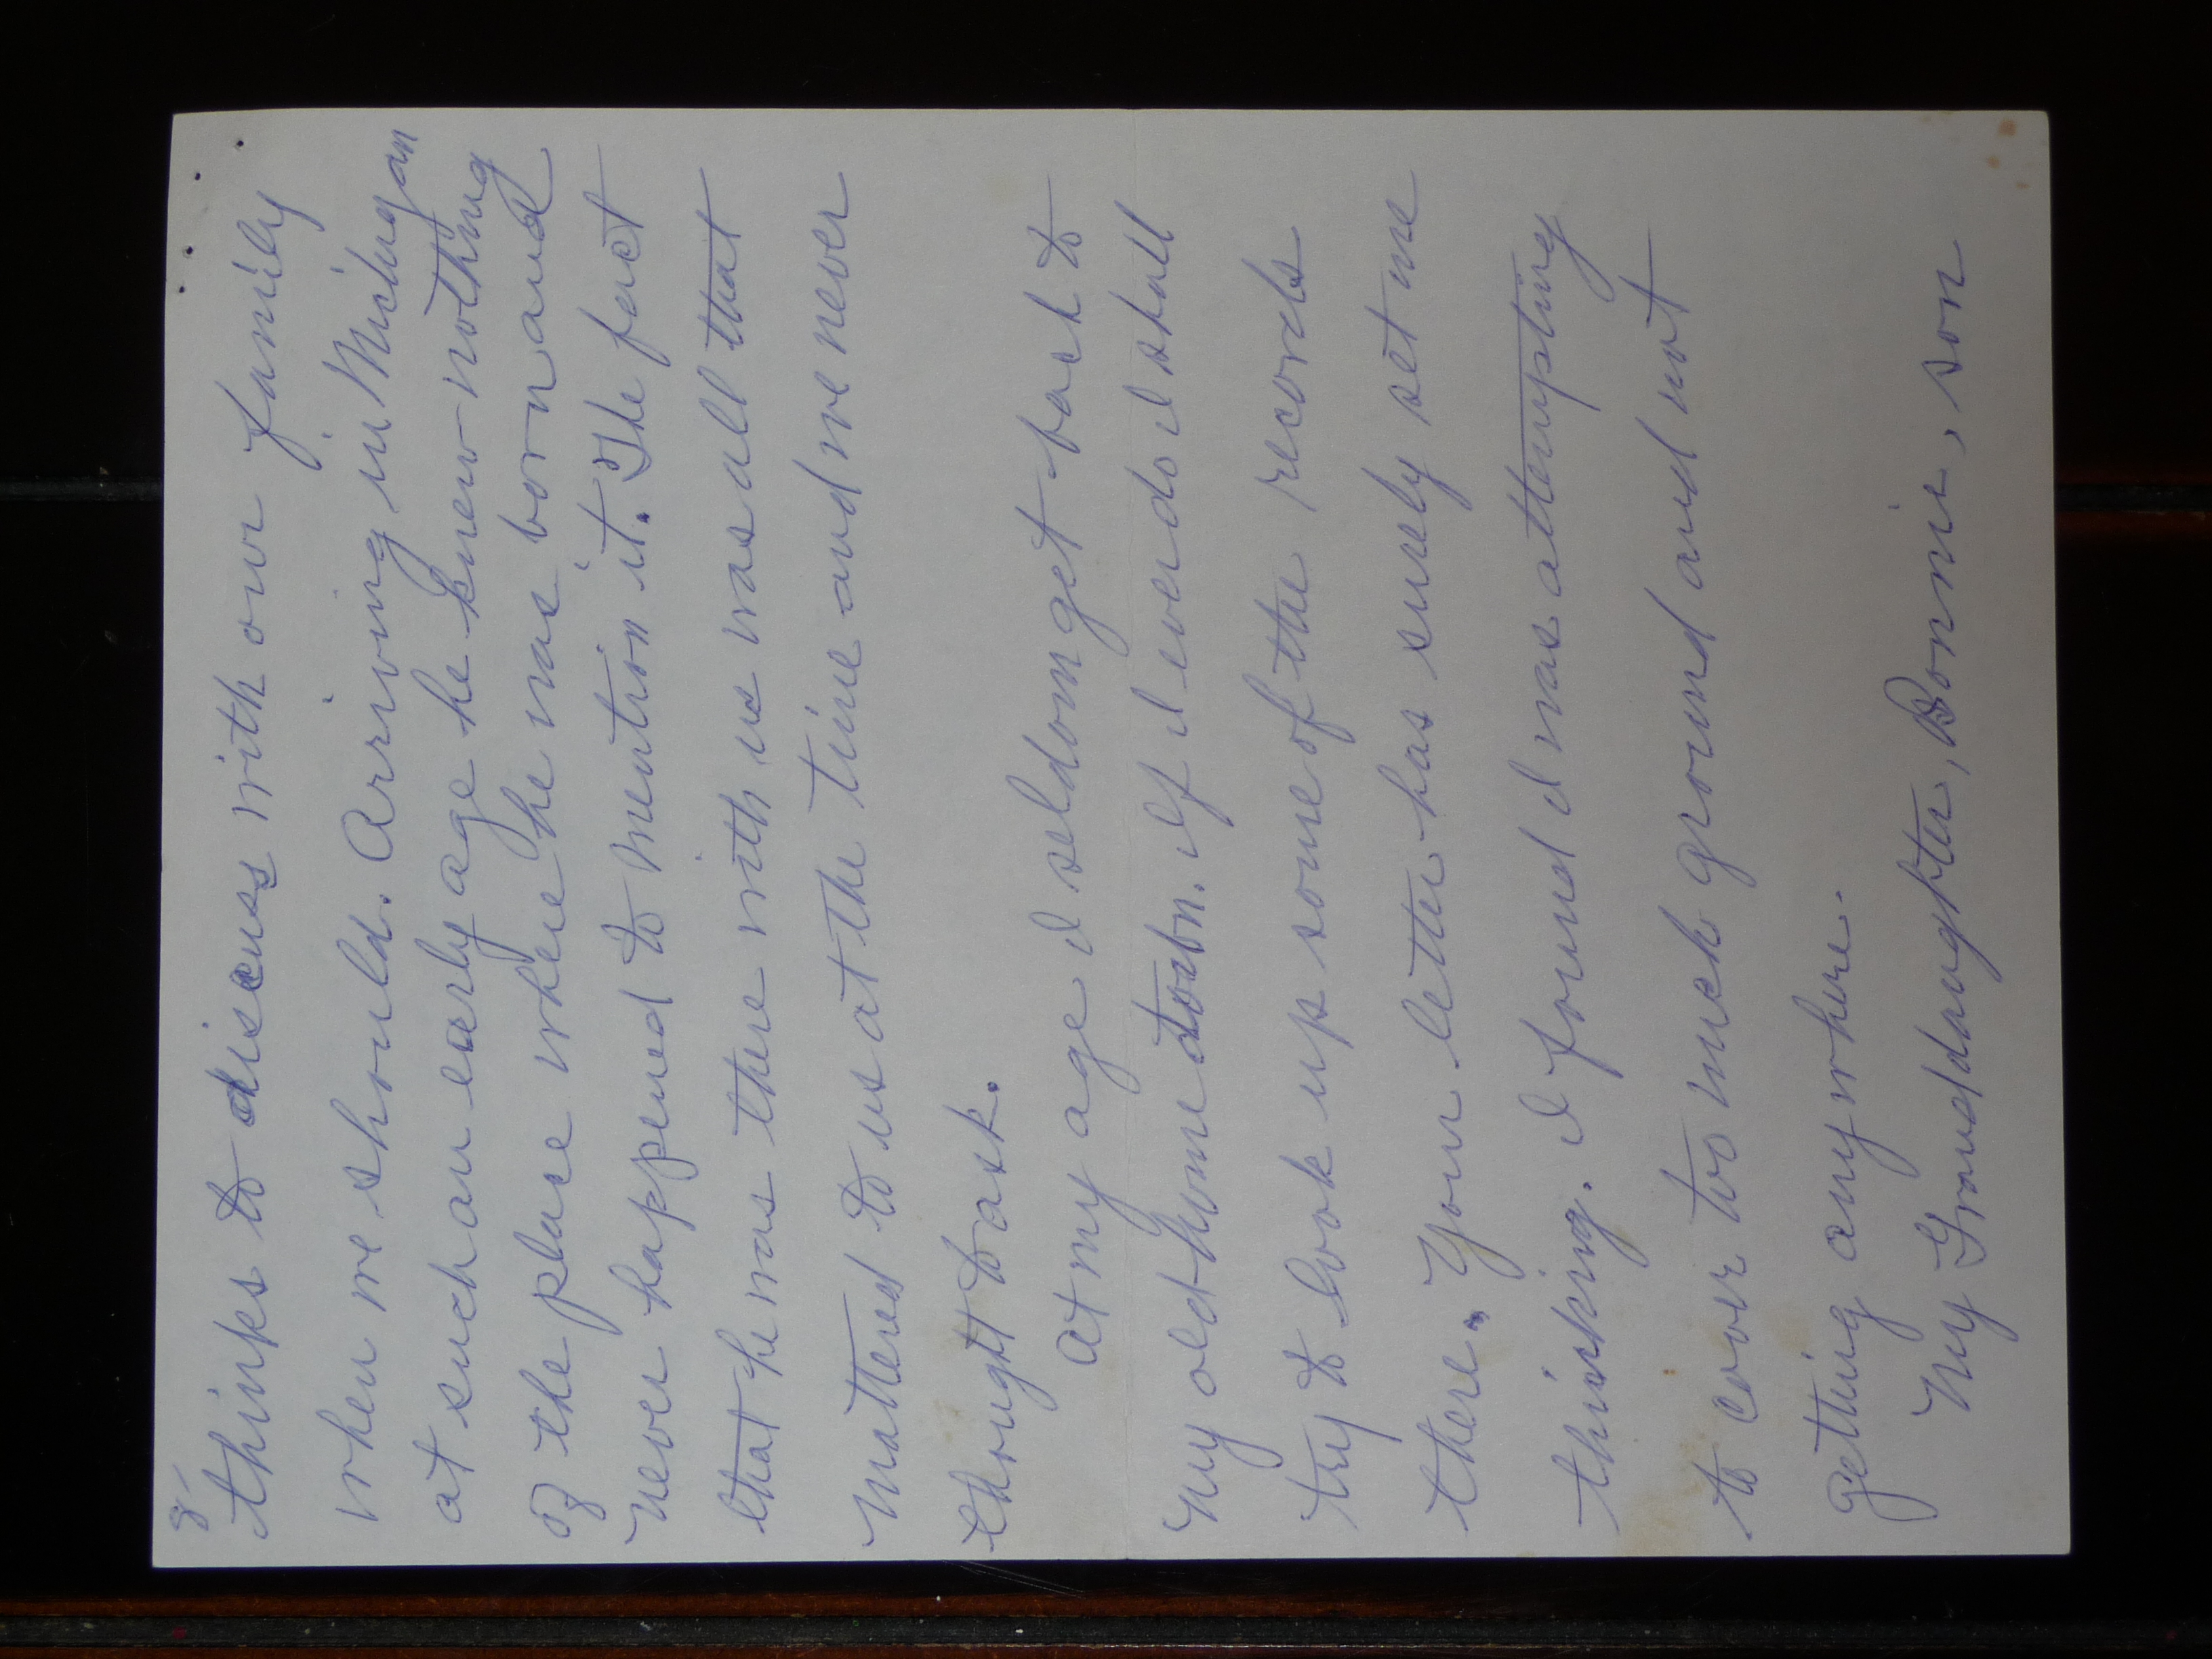 8'
thinks to discuss with our family
when we should. Arriving in Michigan
at such an early age he knew nothing
of the place where he was born and
never happened to mention it. The fact
that he was there with us was all that
mattered to us at the time and we never
thought to ask.
At my age I seldom get back to
my old home town. If I ever do I shall
try to look up some of the records
there. Your letter has surely set me
thinking. I found I was attempting
to cover too much ground and not
getting anywhere.
My Granddaughter, Bonnie, son